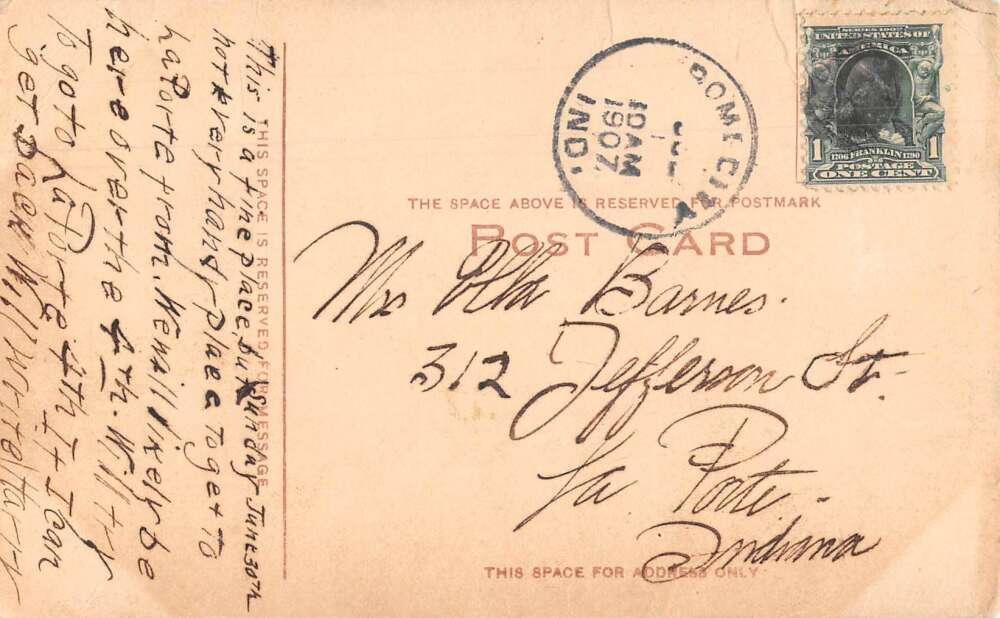 This is a fine place, but Sunday June 30th
not very handy place to get to
LaPorte from. We will likely be
here over the 4th. Will try
To go to LaPorte 4th If I can
get back Will write Harry
THIS SPACE IS RESERVED FOR MESSAGE
ROME CITY
IND.
10 AM
1907
SERIES 1902
UNITED STATES OF
AMERICA
1 1706 FRANKLIN 1790 1
POSTAGE
ONE CENT
THE SPACE ABOVE IS RESERVED FOR POSTMARK
POST CARD
Mrs Ella Barnes.
312 Jefferson St.
La Porte.
Indiana
THIS SPACE FOR ADDRESS ONLY